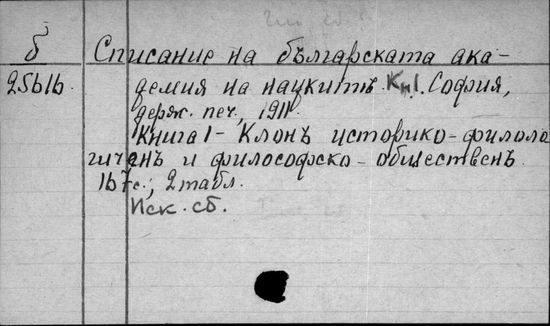 б
Списание на българската ака-
25616.
демия на наукитѣ. Кн1. София,
держ. печ., 1911
Книга 1 - Клонъ историко-филоло
гиченъ и философско-общественъ.
167с., 2 табл.
Иск. сб.